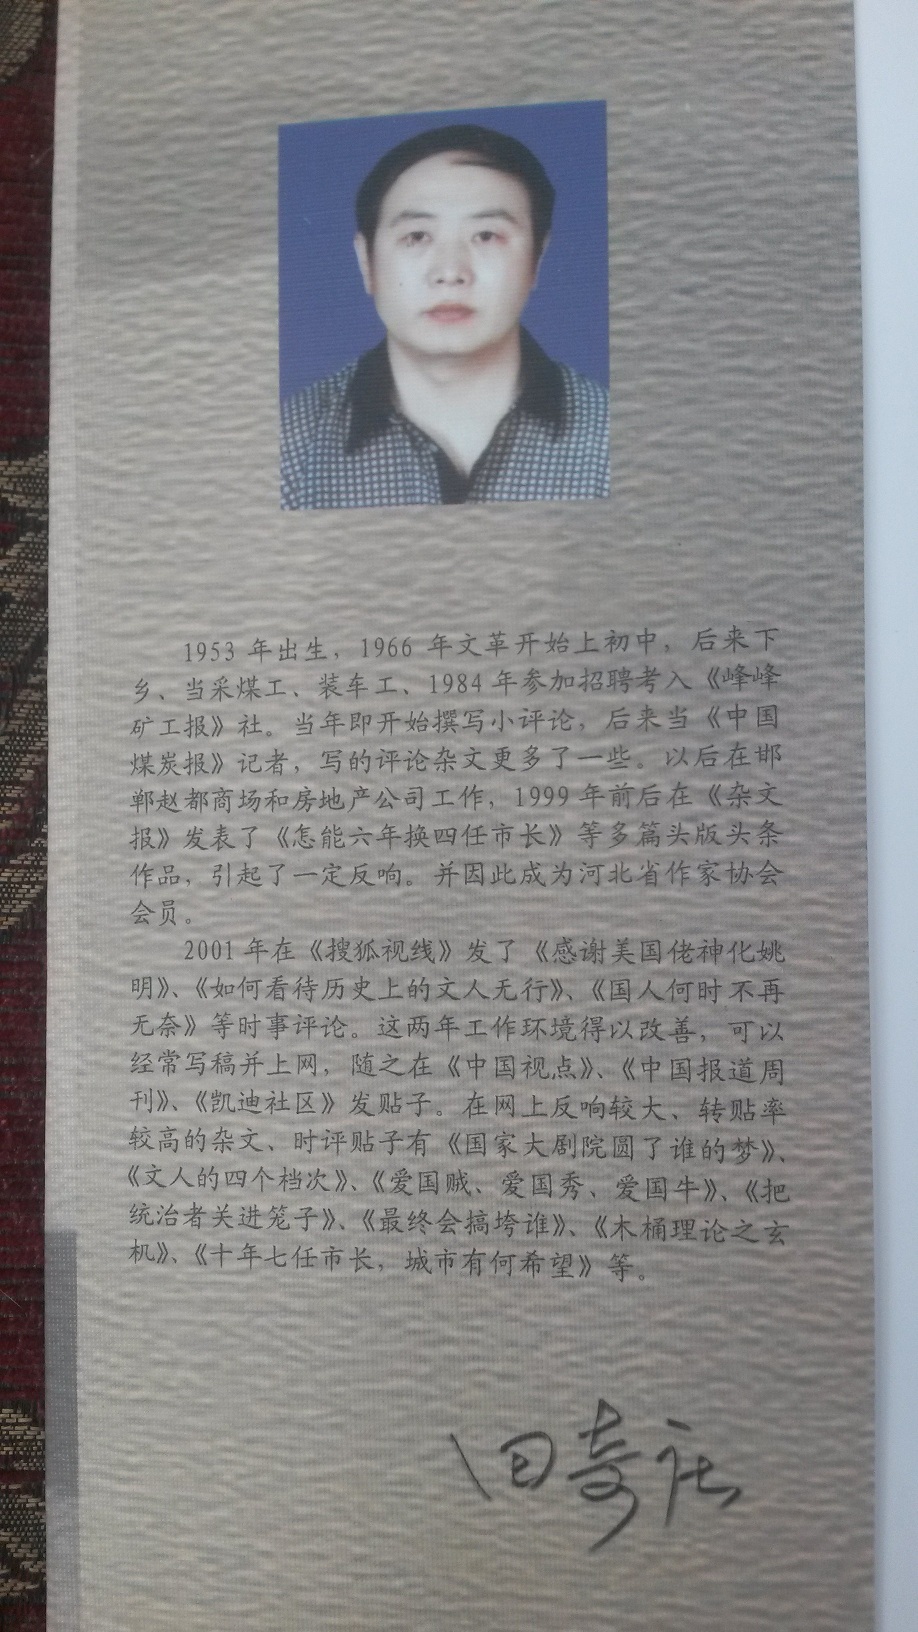 1953 年出生，1966 年文革开始上初中，后来下
乡、当采煤工、装车工、1984 年参加招聘考入《峰峰
矿工报》社。当年即开始撰写小评论，后来当《中国
煤炭报》记者，写的评论杂文更多了一些。以后在邯
郸赵都商场和房地产公司工作，1999 年前后在《杂文
报》发表了《怎能六年换四任市长》等多篇头版头条
作品，引起了一定反响。并因此成为河北省作家协会
会员。
2001 年在《搜狐视线》发了《感谢美国佬神化姚
明》、《如何看待历史上的文人无行》、《国人何时不再
无奈》等时事评论。这两年工作环境得以改善，可以
经常写稿并上网，随之在《中国视点》、《中国报道周
刊》、《凯迪社区》发贴子。在网上反响较大、转贴率
较高的杂文、时评贴子有《国家大剧院圆了谁的梦》、
《文人的四个档次》、《爱国贼、爱国秀、爱国牛》、《把
统治者关进笼子》、《最终会搞垮谁》、《木桶理论之玄
机》、《十年七任市长，城市有何希望》等。